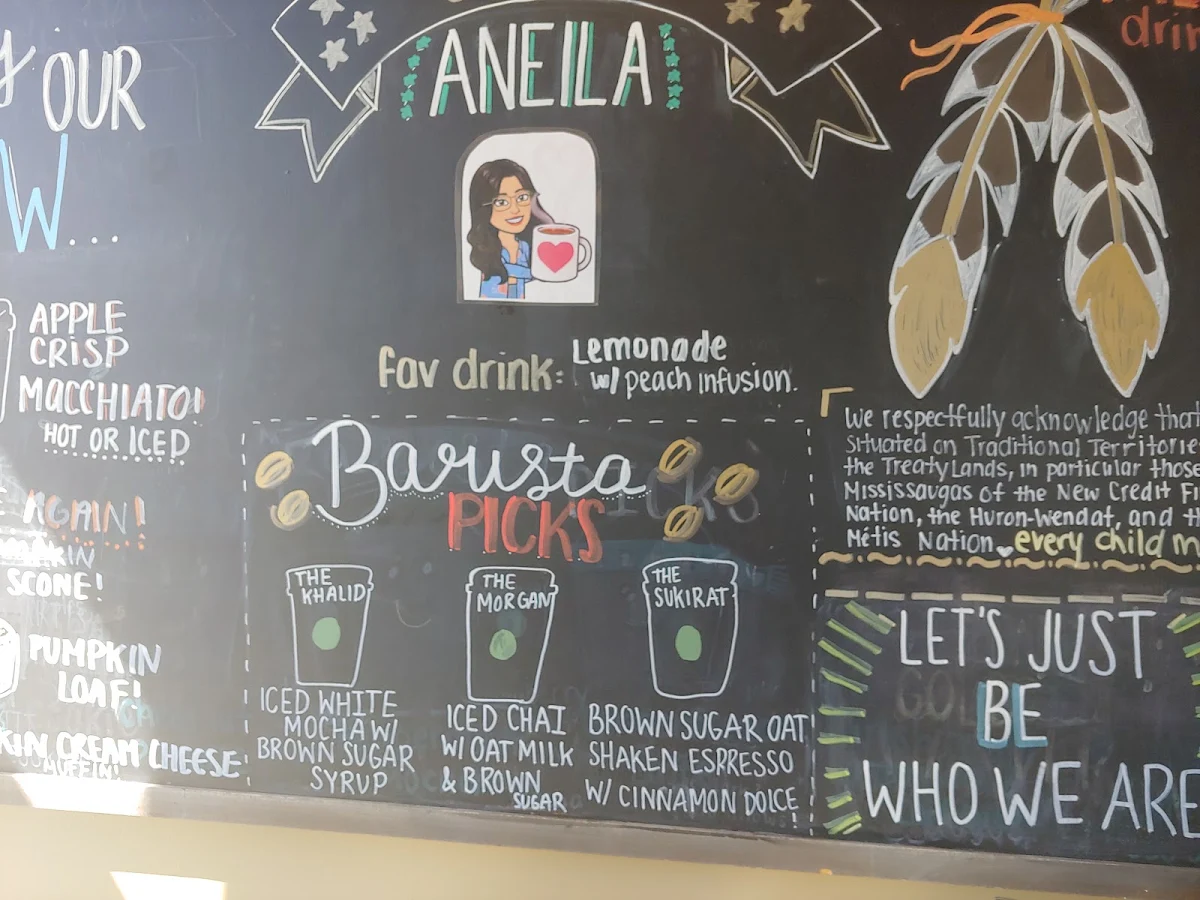 OUR
W...
APPLE
CRISP
MACCHIATO!
HOT OR ICED
AGAIN!
SCONE!
PUMPKIN
LOAF!
KIN CREAM CHEESE
MUFFIN!
ANEILA
fav drink: Lemonade
w/ peach infusion.
Barista
PICKS
THE
KHALID
ICED WHITE
MOCHA W/
BROWN SUGAR
SYRUP
THE
MORGAN
ICED CHAI
W/ OAT MILK
& BROWN
SUGAR
THE
SUKIRAT
BROWN SUGAR OAT
SHAKEN ESPRESSO
W/ CINNAMON DOLCE
!
drin
We respectfully acknowledge that
Situated on Traditional Territorie
the Treaty Lands, in particular those
Mississaugas of the New Credit Fi
Nation, the Huron-Wendat, and th
Métis Nation. every child m
LET'S JUST
BE
WHO WE ARE